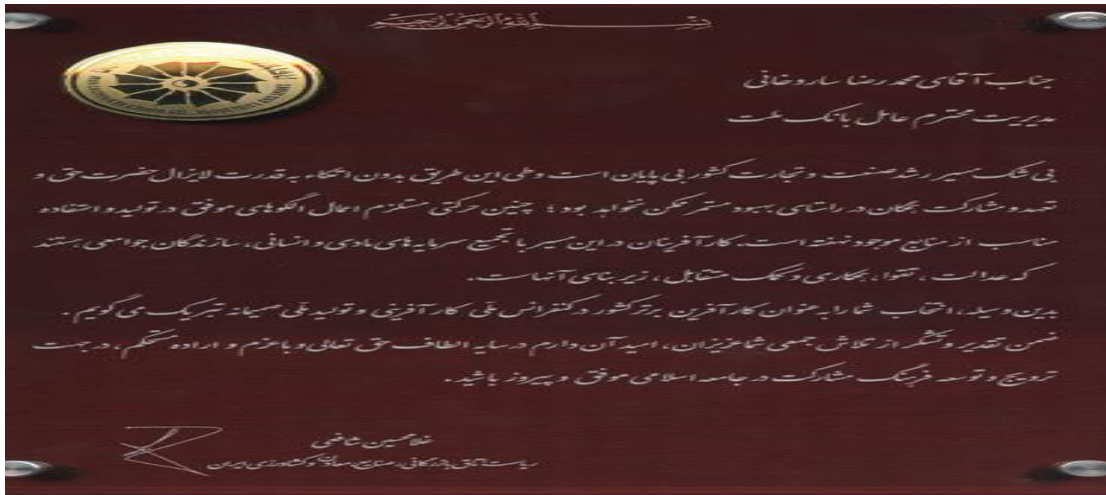 بسم الله الرحمن الرحیم
جناب آقای محمدرضا ساروخانی
مدیریت محترم عامل بانک ملت
بی شک مسیر رشد صنعت و تجارت کشور بی پایان است و طی این طریق بدون اتکاء به قدرت لایزال حضرت حق و
تعهد و مشارکت همگان در راستای بهبود مستمر ممکن نخواهد بود ؛ چنین حرکتی مستلزم اعمال الگوهای موفق در تولید و استفاده
مناسب از منابع موجود نهفته است. کارآفرینان در این مسیر با تجمیع سرمایه های مادی و انسانی ، سازندگان جوامعی هستند
که عدالت ، تقوا ، همکاری و کمک متقابل ، زیربنای آنهاست.
بدین وسیله، انتخاب شما را به عنوان کارآفرین برتر کشور در کنفرانس ملی کارآفرینی و تولید ملی صمیمانه تبریک می گویم .
ضمن تقدیر و تشکر از تلاش جمعی شما عزیزان ، امید آن دارم در سایه الطاف حق تعالی و با عزم و اراده مستحکم ، در جهت
ترویج و توسعه فرهنگ مشارکت در جامعه اسلامی موفق و پیروز باشید .
غلامحسین شافعی
ریاست اتاق بازرگانی، صنایع، معادن و کشاورزی ایران